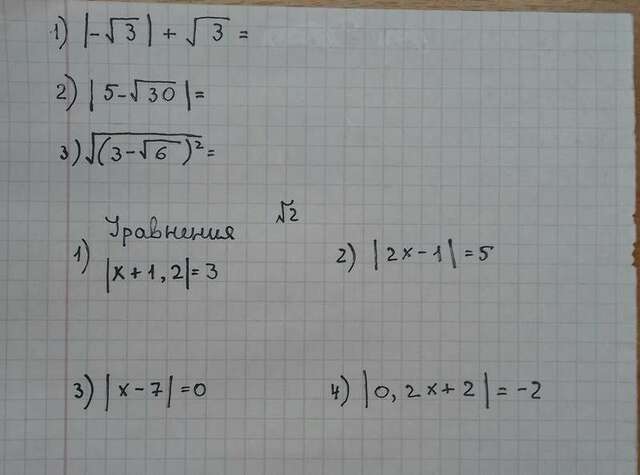 1) |-√3| + √3 =
2) |5-√30| =
3) √(3-√6)² =
Уравнения √2
1) |x+1,2|=3
2) |2x-1|=5
3) |x-7|=0
4) |0,2x+2|=-2